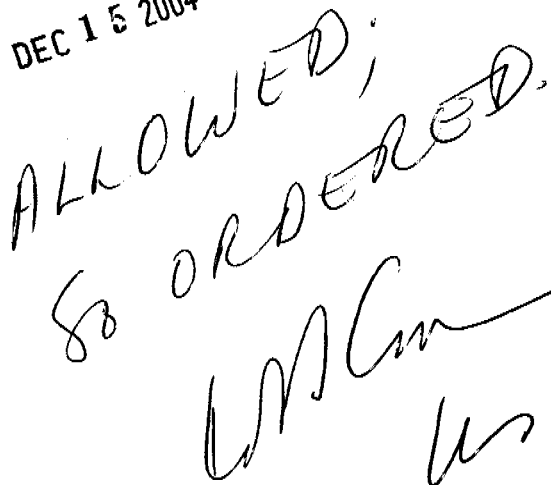 DEC 15 2004
ALLOWED;
SO ORDERED.